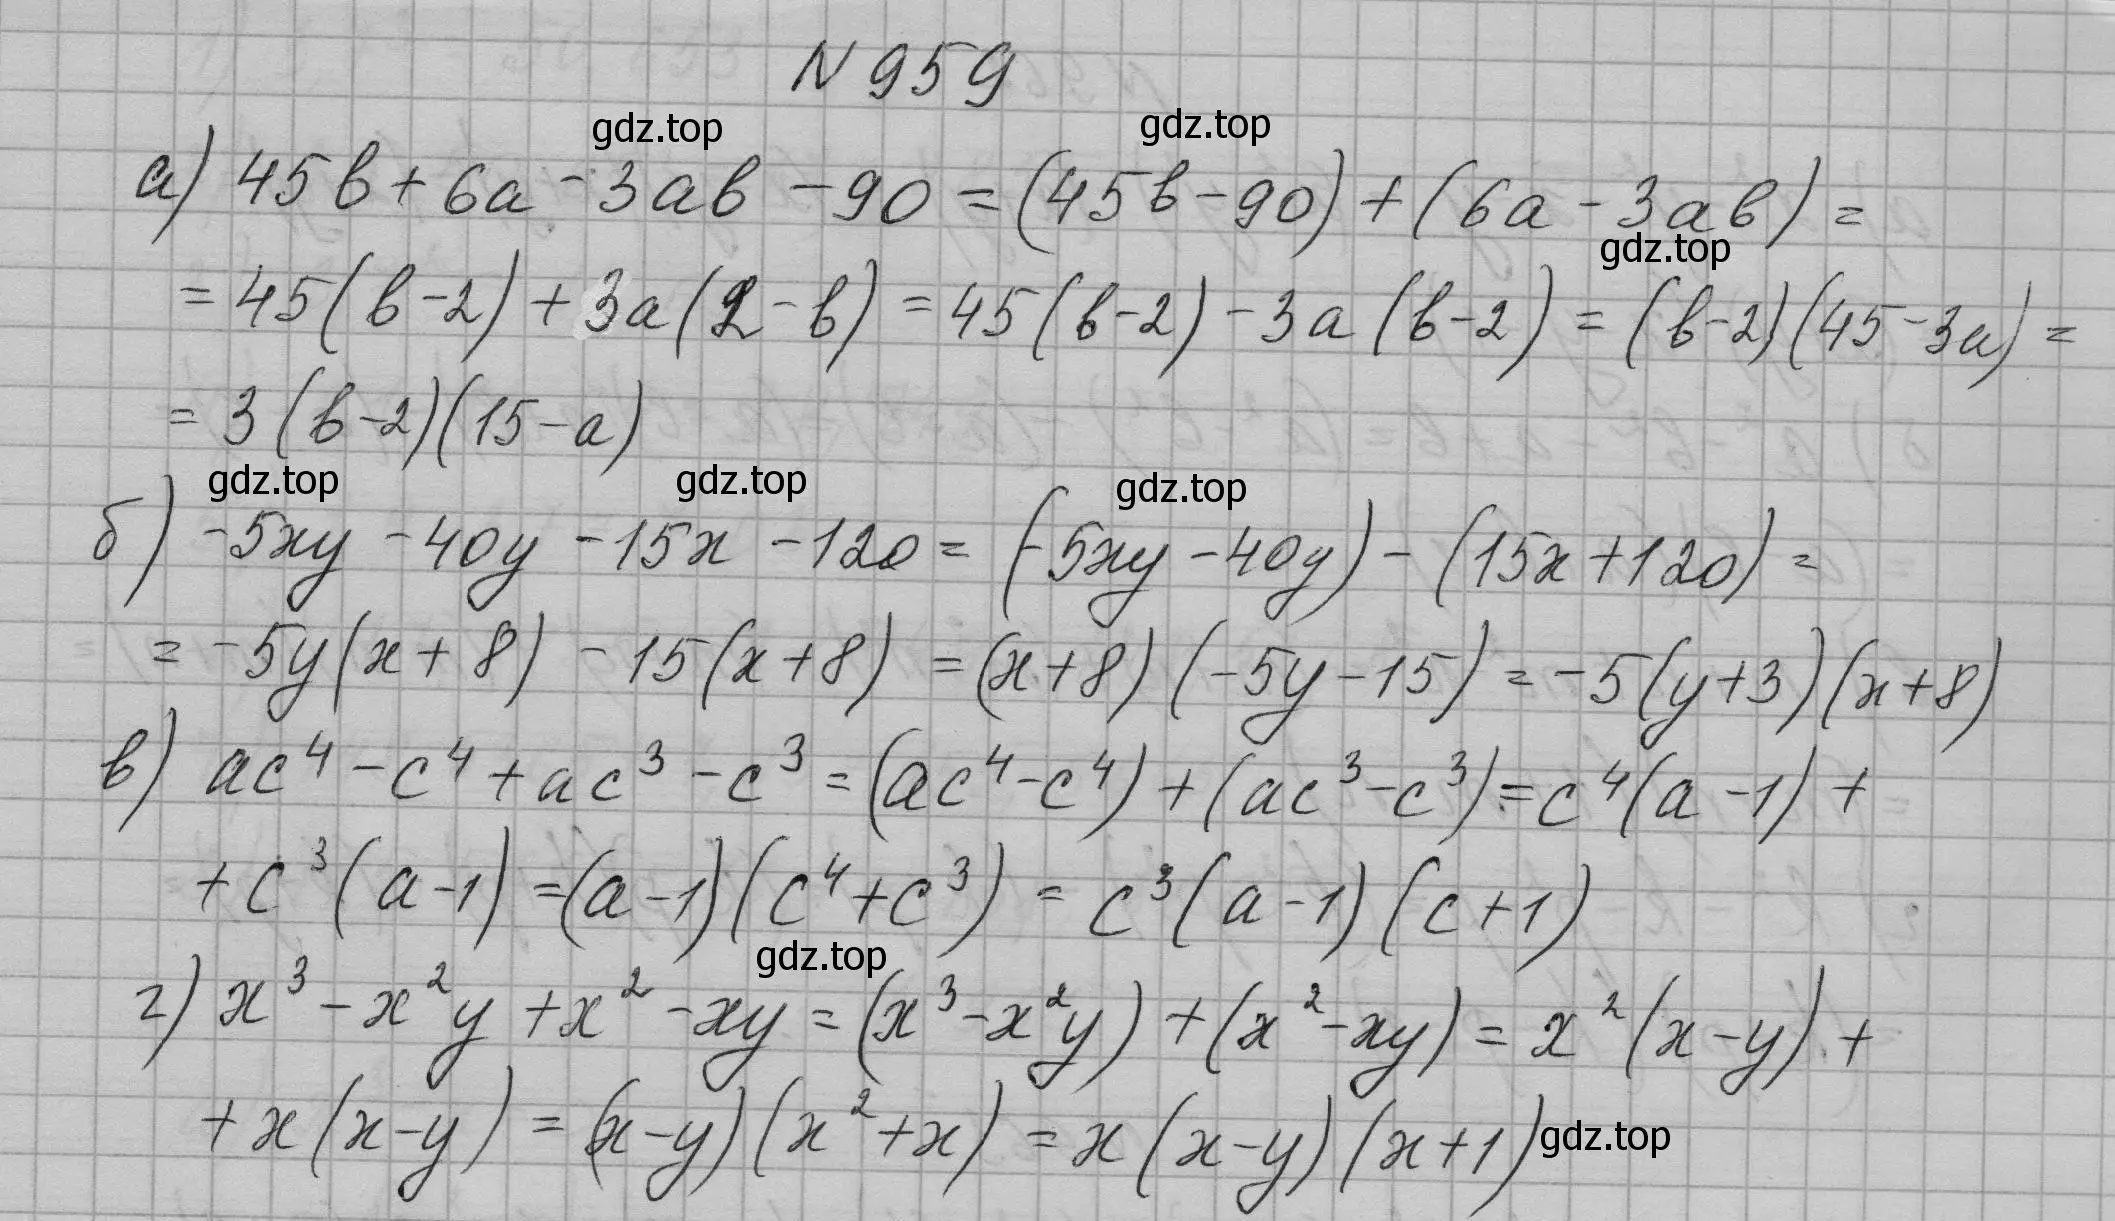 N 959
gdz.top gdz.top
а) 45b + 6a - 3ab - 90 = (45b - 90) + (6a - 3ab) =
gdz.top
= 45(b-2) + 3a(2-b) = 45(b-2) - 3a(b-2) = (b-2)(45-3a) =
= 3(b-2)(15-a)
gdz.top gdz.top gdz.top
б) -5xy - 40y - 15x - 120 = (-5xy - 40y) - (15x + 120) =
= -5y(x+8) - 15(x+8) = (x+8)(-5y-15) = -5(y+3)(x+8)
в) ac⁴ - c⁴ + ac³ - c³ = (ac⁴ - c⁴) + (ac³ - c³) = c⁴(a-1) +
+ c³(a-1) = (a-1)(c⁴+c³) = c³(a-1)(c+1)
gdz.top
г) x³ - x²y + x² - xy = (x³ - x²y) + (x² - xy) = x²(x-y) +
+ x(x-y) = (x-y)(x²+x) = x(x-y)(x+1) gdz.top